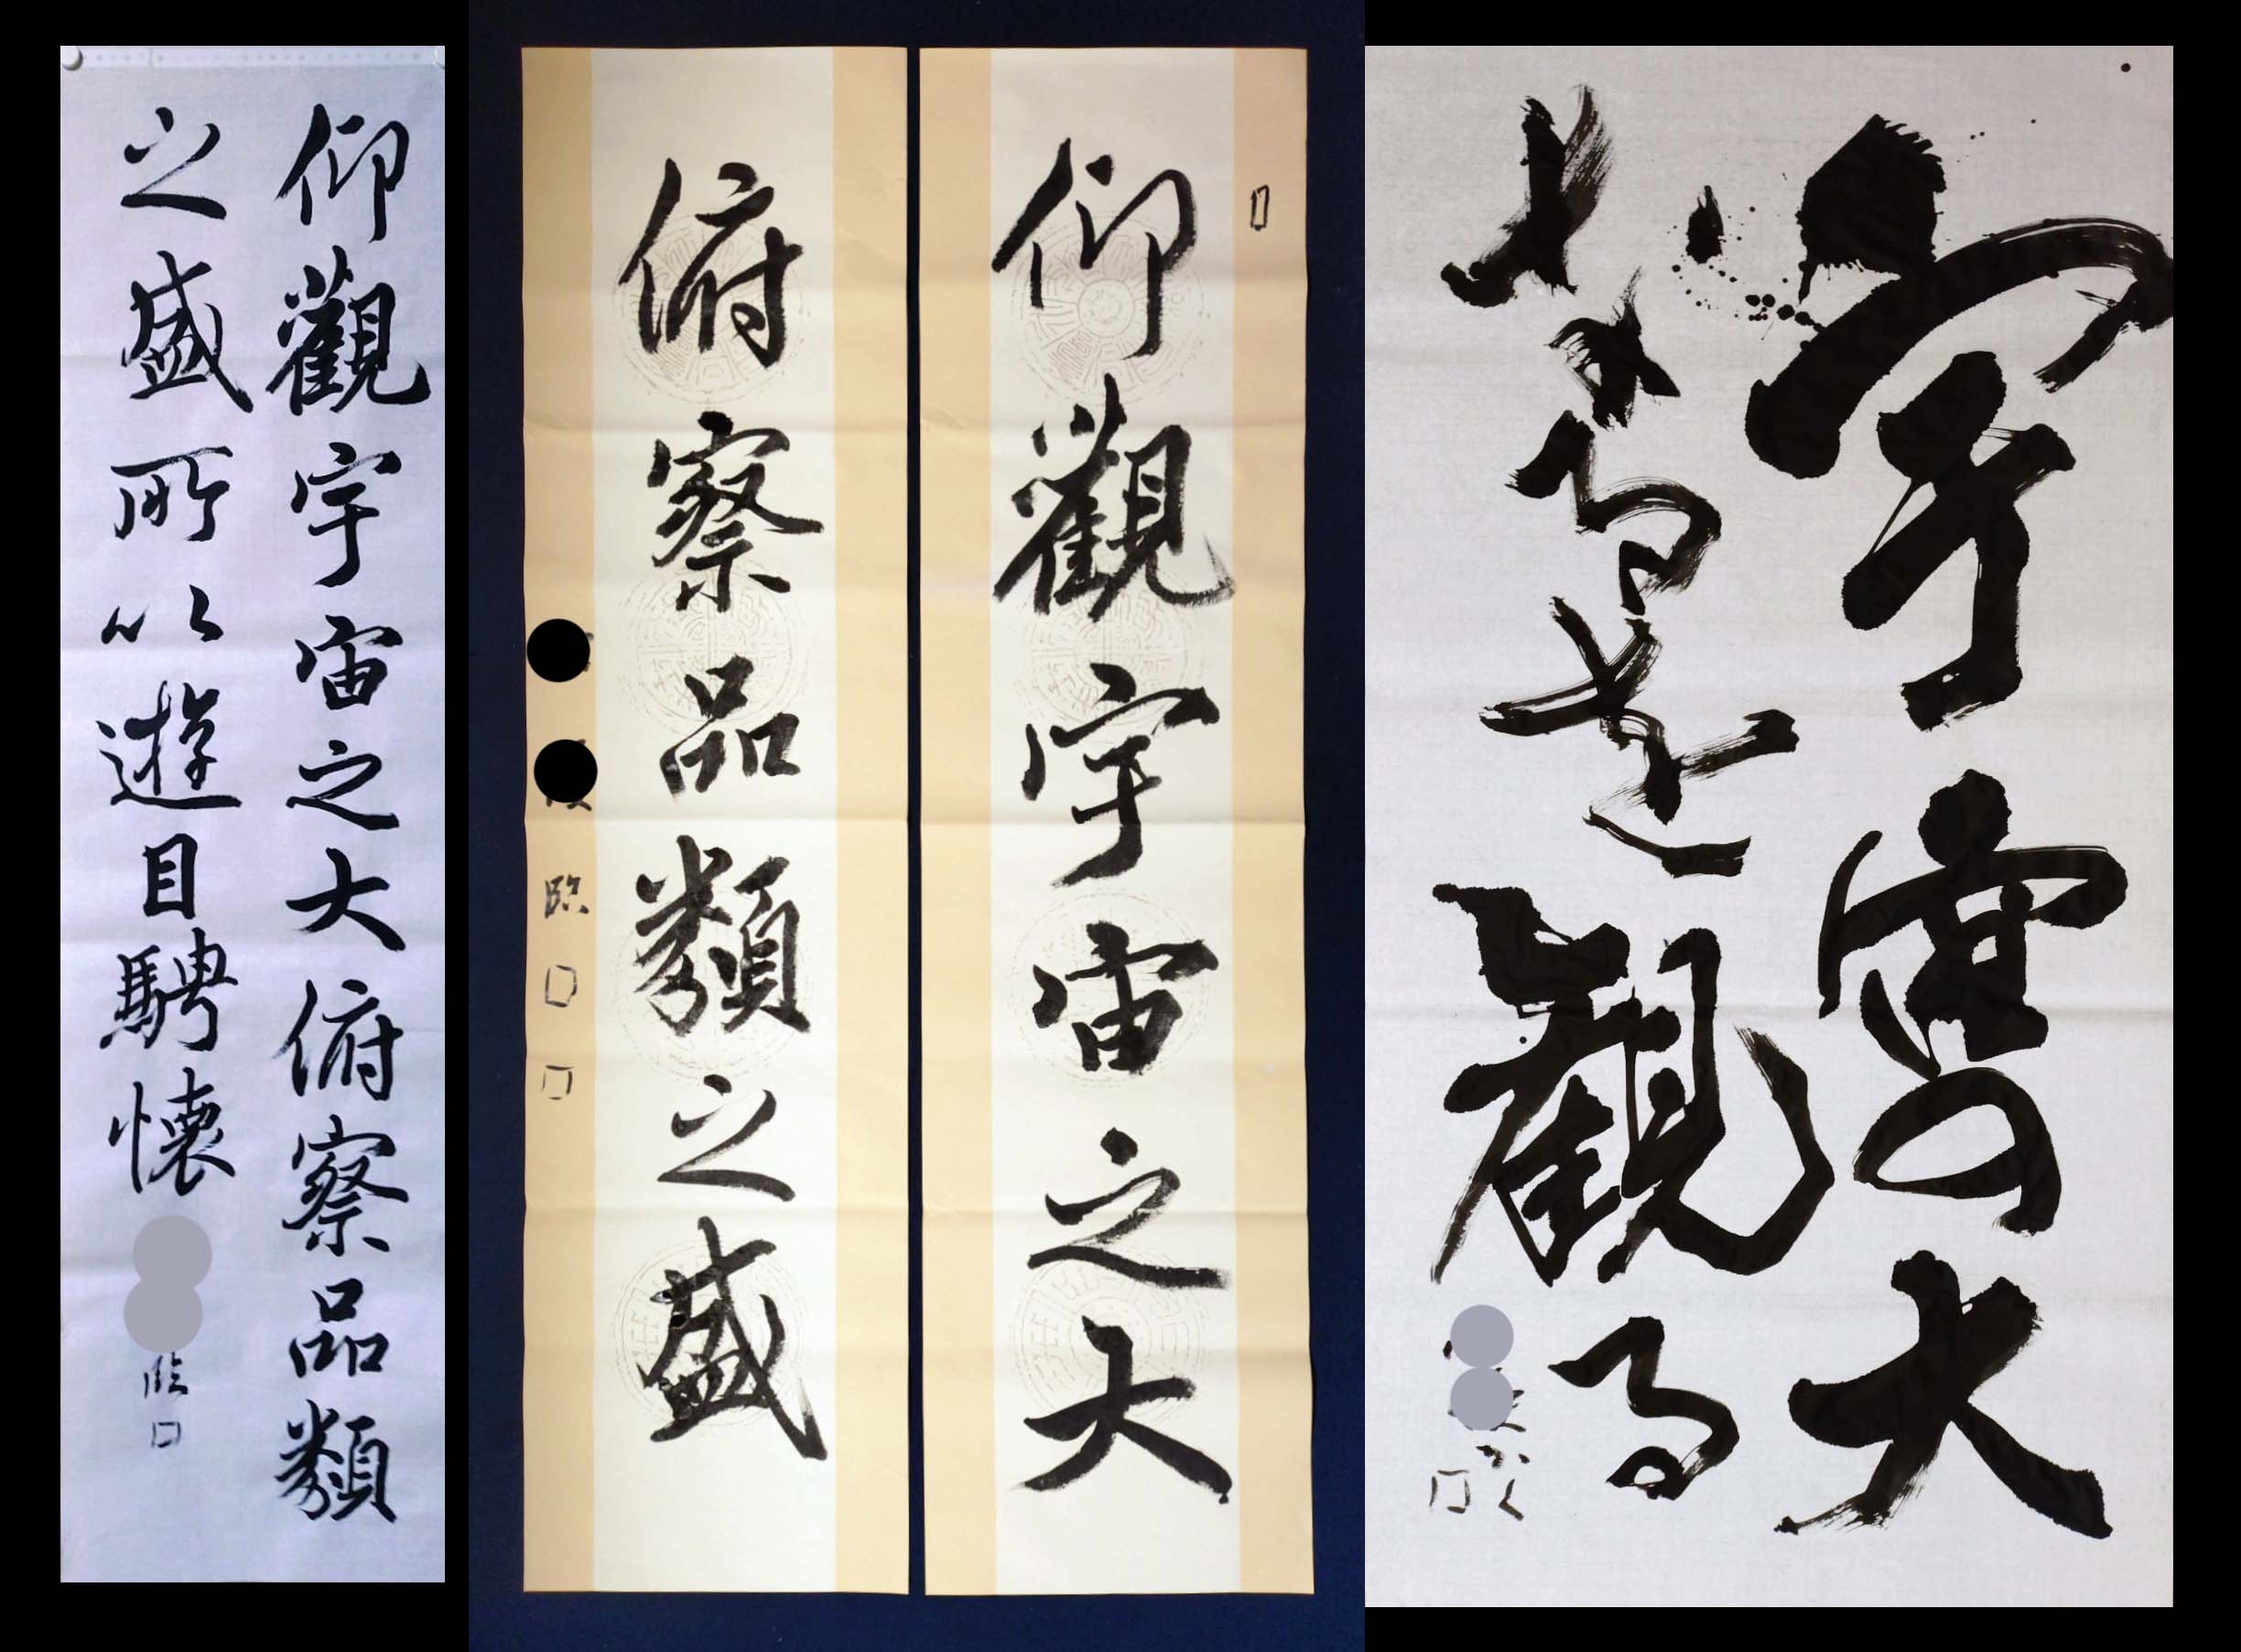 宇宙の大
いなるを観る
かく
仰觀宇宙之大
俯察品類之盛
臨
仰觀宇宙之大俯察品類
之盛所以遊目騁懷
臨